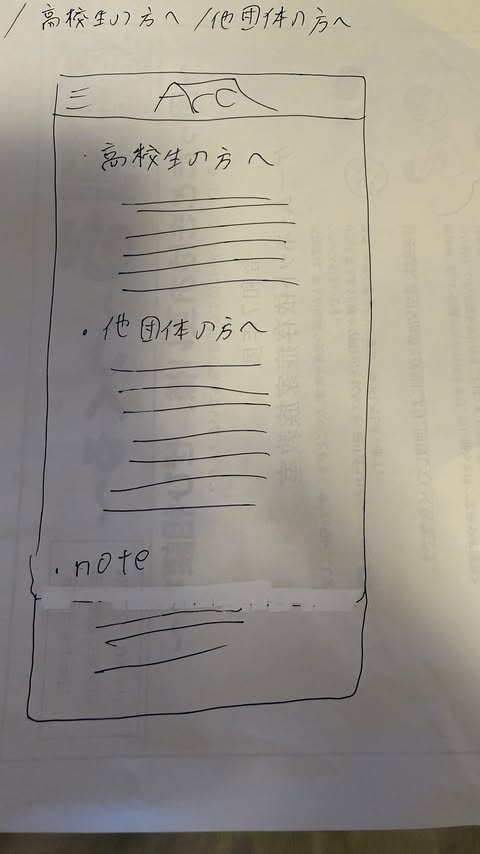 /高校生の方へ /他団体の方へ
Arc
・高校生の方へ
・他団体の方へ
・note